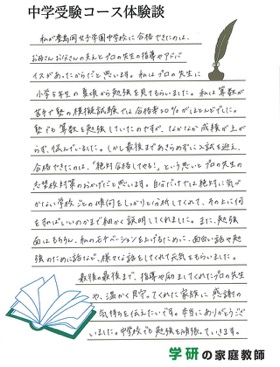 中学受験コース体験談
私が豊島岡女子学園中学校に合格できたのは、
お母さんお父さんの支えとプロの先生の指導やアドバ
イスがあったからだと思います。私はプロの先生に
小学5年生の夏頃から勉強を見てもらいました。私は算数が
苦手で塾の模擬試験では合格率20%がほとんどでした。
塾でも算数を勉強していたのですが、なかなか成績が上が
らず、悩んでいました。しかし最後まであきらめずに入試を迎え、
合格できたのは、「絶対合格してやる!」という思いとプロの先生の
志望校対策のおかげだと思います。自分だけでは絶対に気が
つかない学校ごとの傾向をしっかりと分析してくれて、その上に何
を学ばしいのかまで細かく説明してくれました。また、勉強
面はもちろん、私のモチベーションを上げるために、面白い話や勉
強のために話など、様々な話をしてくれて元気をもらいました。
最後の最後まで、指導や励ましてくれたプロの先生
や、温かく見守ってくれた家族に感謝の
気持ちを伝えたいです。本当にありがとうござ
いました。中学校でも勉強を頑張っていきます。
学研の家庭教師